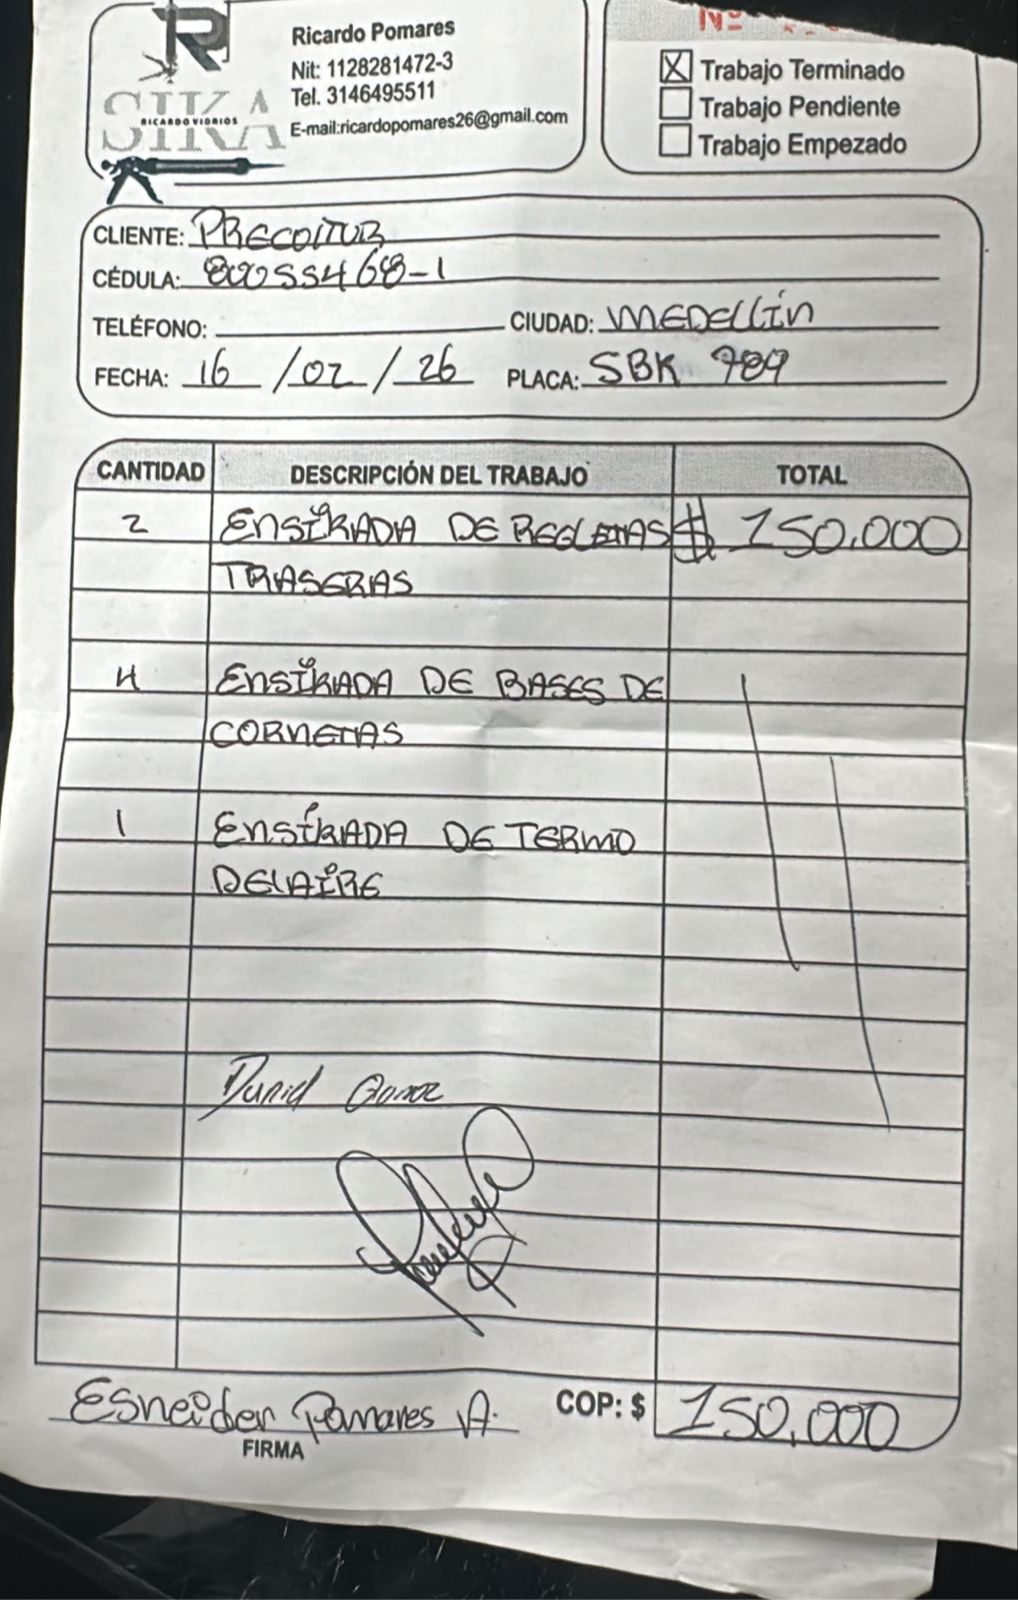 Ricardo Pomares
Nit: 1128281472-3
Tel. 3146495511
E-mail:ricardopomares26@gmail.com
SIKA
RICARDO VIDRIOS
Nº
X Trabajo Terminado
Trabajo Pendiente
Trabajo Empezado
CLIENTE: PRECOLTUR
CÉDULA: 80055468-1
TELÉFONO: CIUDAD: MEDELLÍN
FECHA: 16 / 02 / 26 PLACA: SBK 789
CANTIDAD DESCRIPCIÓN DEL TRABAJO TOTAL
2 ENSIKADA DE REGLETAS $ 150.000
TRASERAS
4 ENSIKADA DE BASES DE
CORNETAS
1 ENSIKADA DE TERMO
DELAIRE
Daniel
Esneider Pomares A. COP: $ 150.000
FIRMA